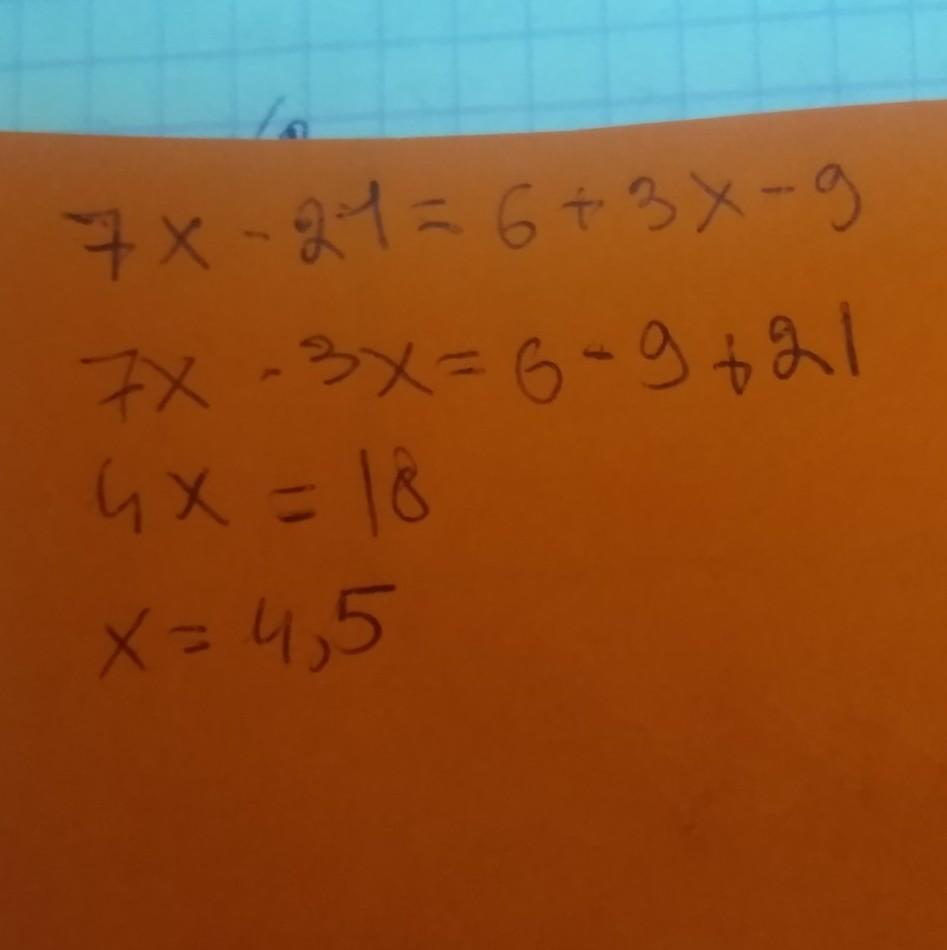 7x - 21 = 6 + 3x - 9
7x - 3x = 6 - 9 + 21
4x = 18
x = 4,5